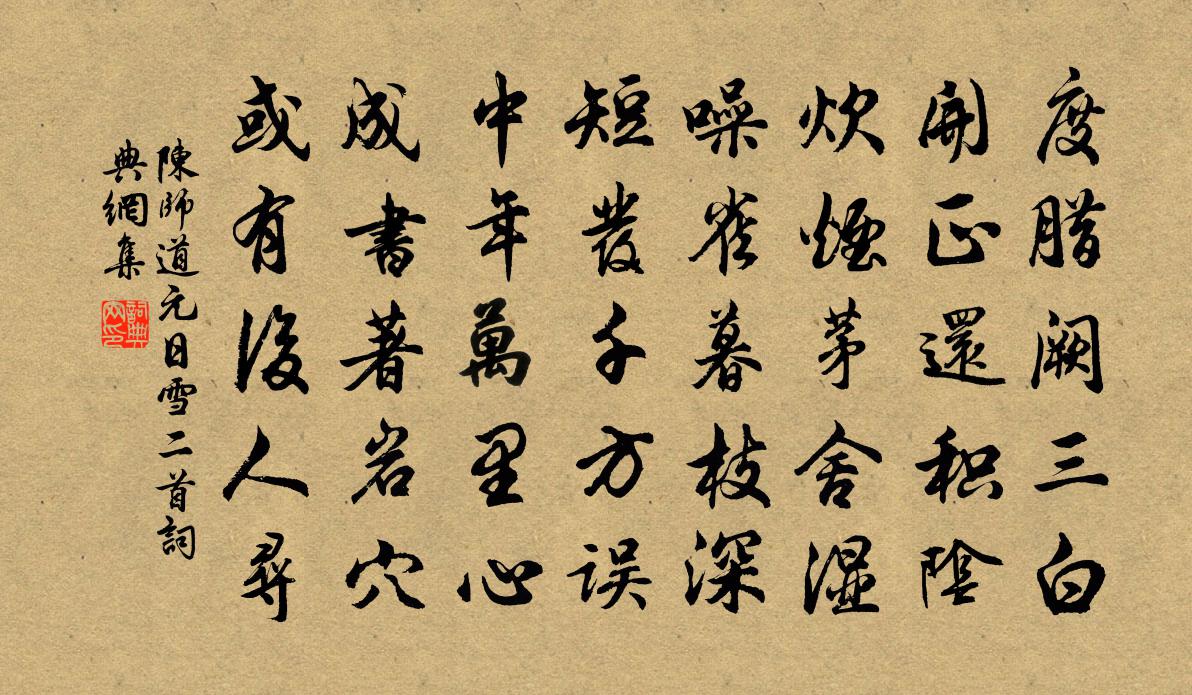 度腊阙三白
開正還积陰
炊煙茅舍湿
噪雀暮枝深
短發千方误
中年萬里心
成書著岩穴
或有後人尋
陳師道元日雪二首詞
典網集
詞典
网印